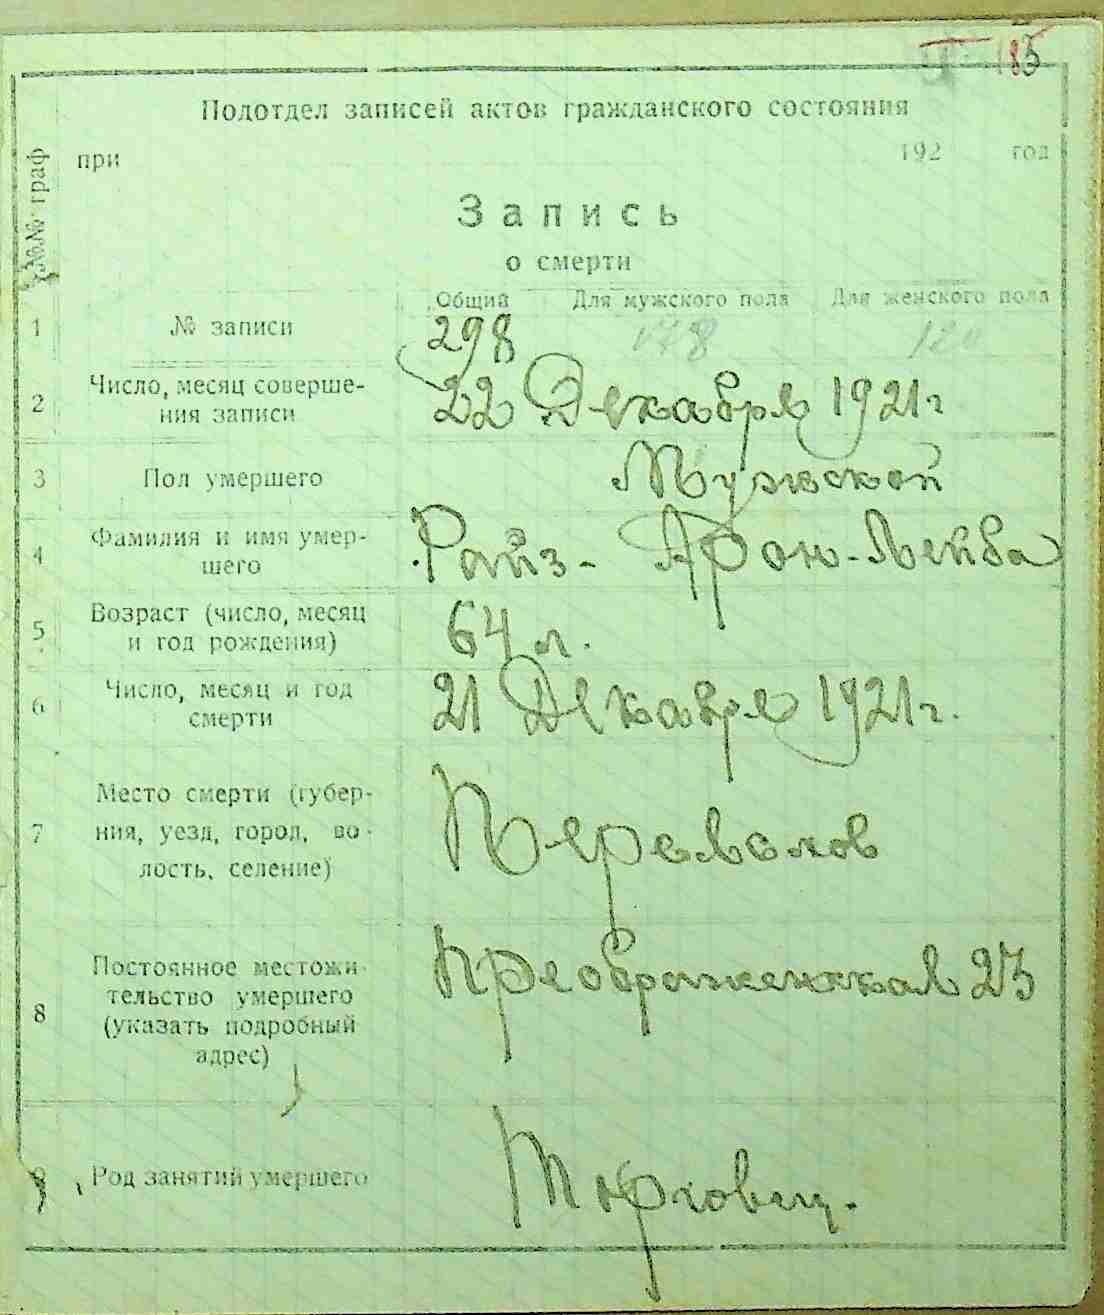 185
Подотдел записей актов гражданского состояния
при 192 год
№№ граф
Запись
о смерти
Общий Для мужского пола Для женского пола
1 № записи 298 178 120
2 Число, месяц соверше-
ния записи 22 Декабря 1921 г
3 Пол умершего Мужской
4 Фамилия и имя умер-
шего Райз- Арон-Лейба
5 Возраст (число, месяц
и год рождения) 64 л.
6 Число, месяц и год
смерти 21 Декавря 1921 г.
7 Место смерти (губер-
ния, уезд, город, во-
лость, селение)
8 Постоянное местожи-
тельство умершего
(указать подробный
адрес) Преображенская 23
9 Род занятий умершего Торговец.